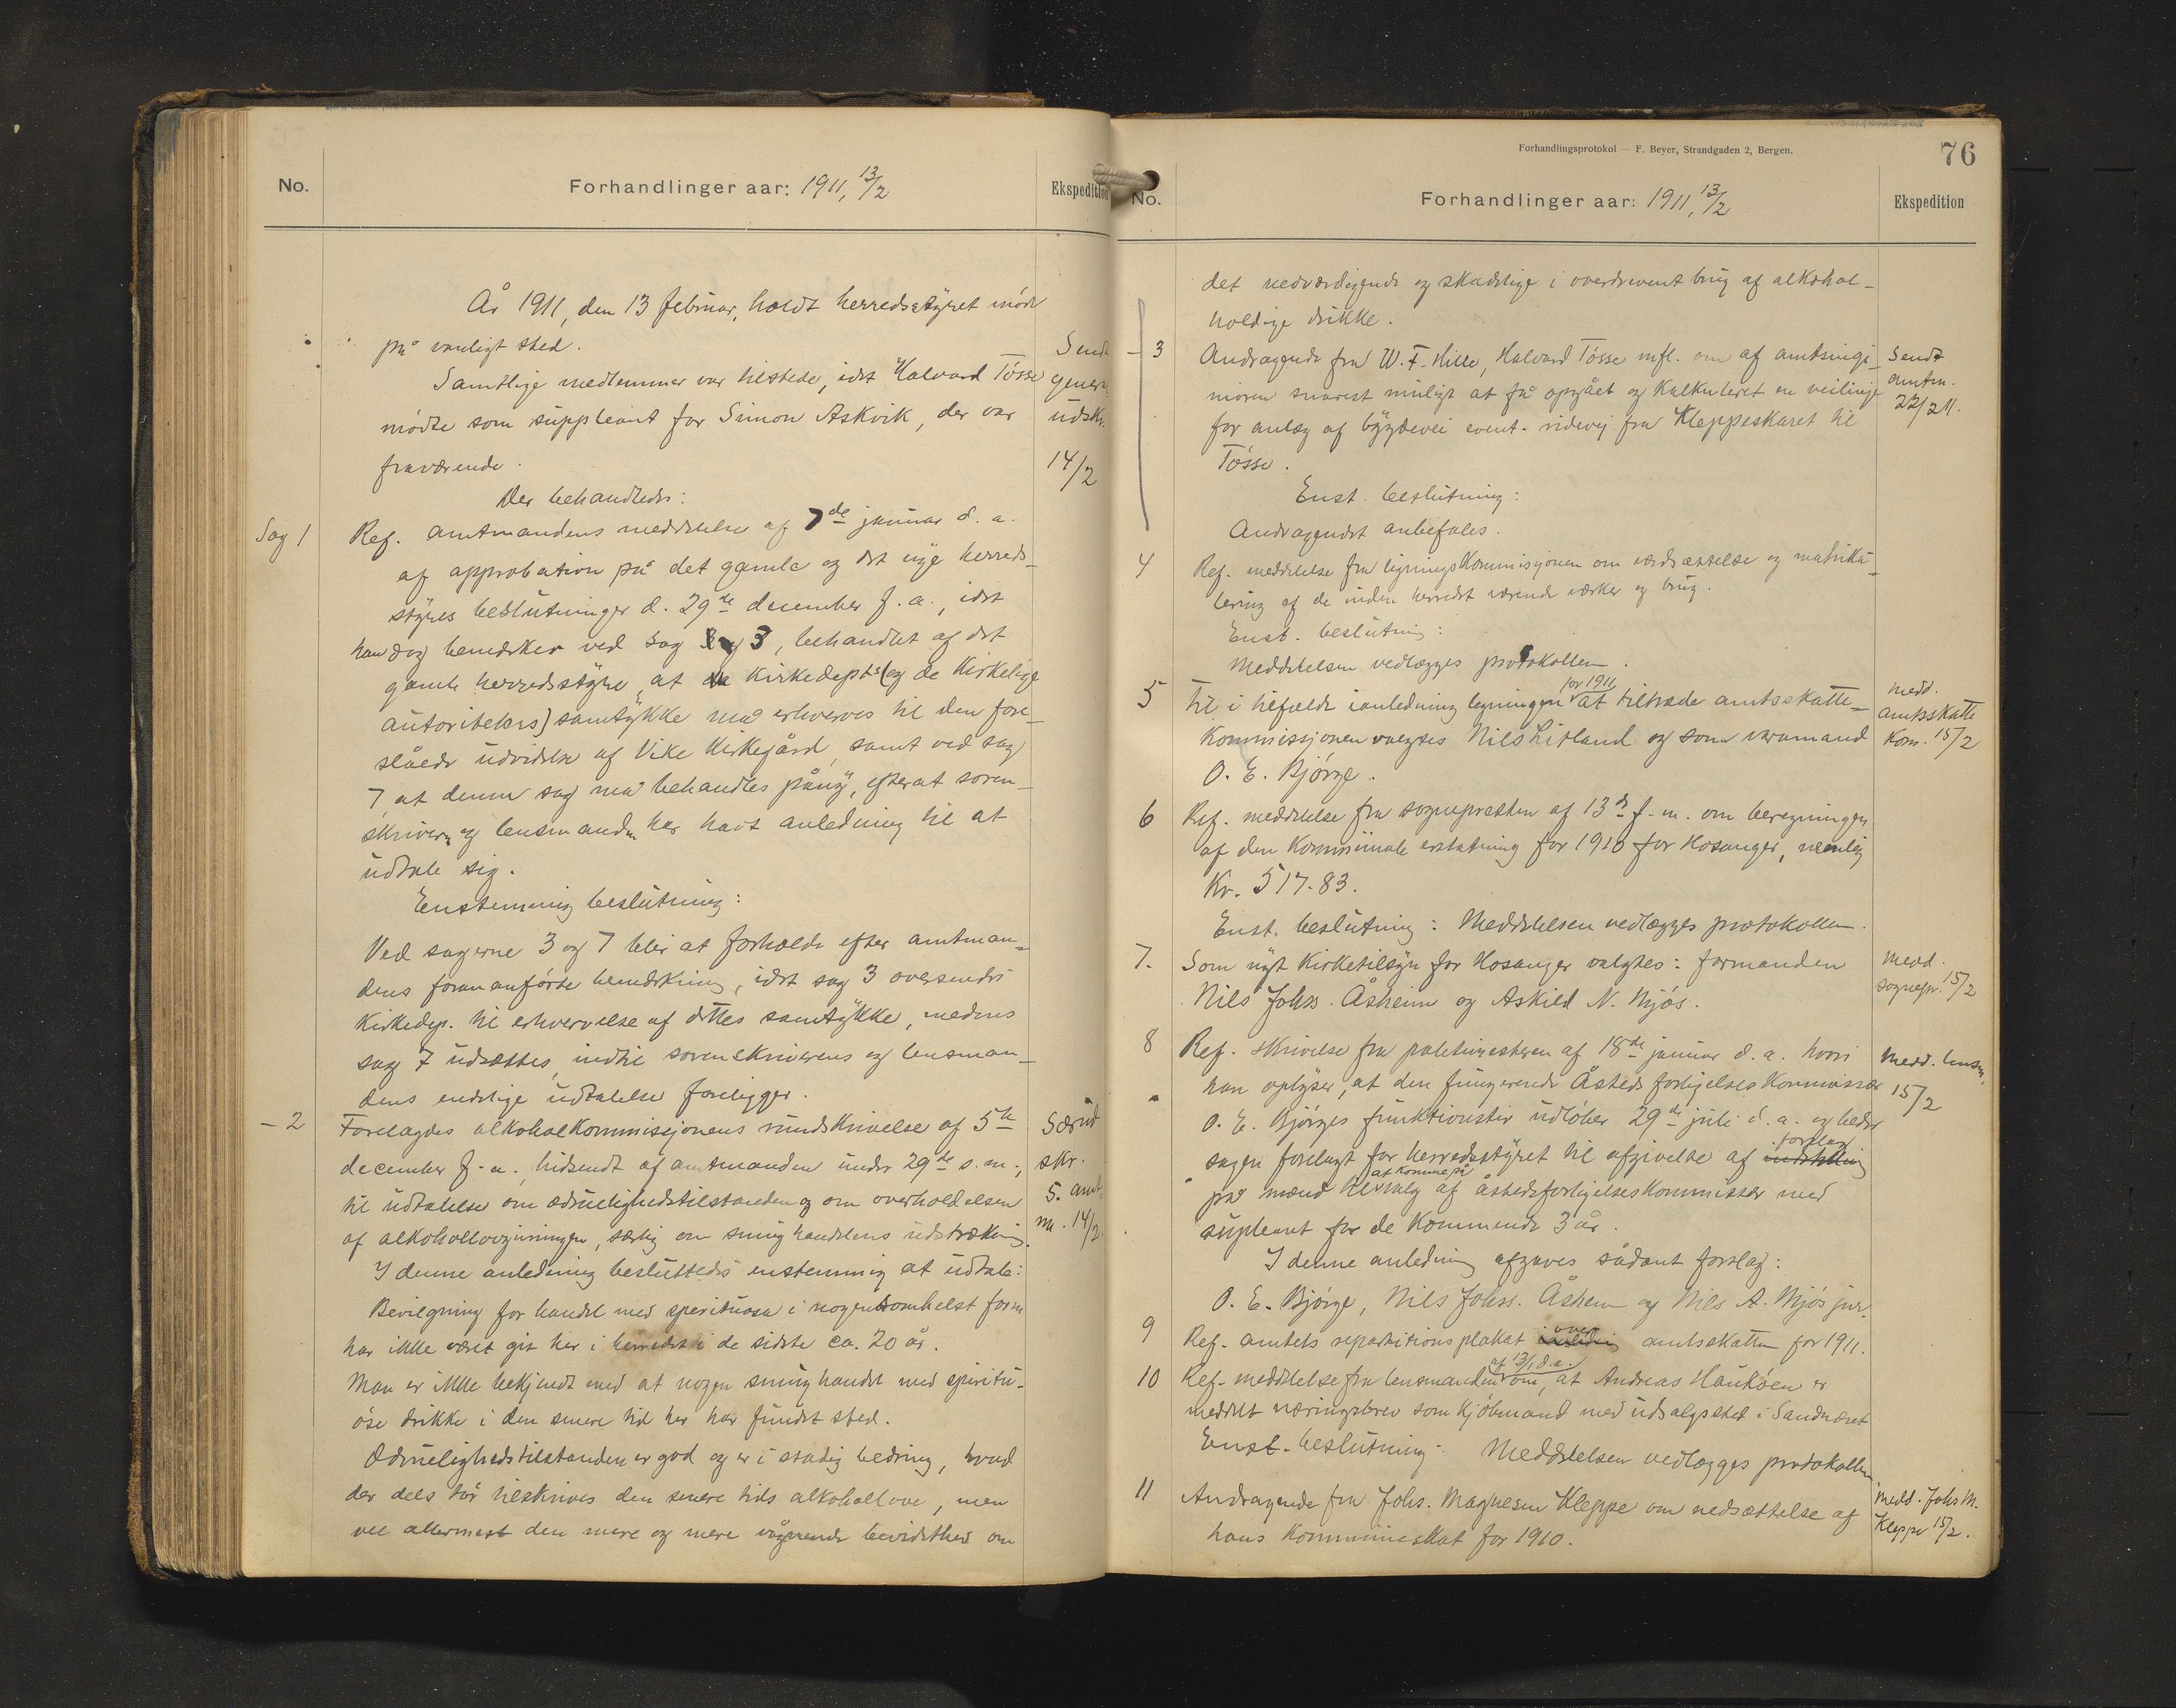 No.
Forhandlinger aar: 1911, 13/2
Ekspedition
År 1911, den 13 februar, holdt herredsstyret møde
på vanligt sted.
Samtlige medlemmer var tilstede, idet Halvard Tøsse
mødte som suppleant for Simon Askvik, der var
fraværende.
Sendt
gener.
udskr.
14/2
Der behandledes:
Sag 1
Ref. amtmandens meddelelse af 7de januar d. a.
af approbation på det gamle og det nye herreds-
styres beslutninger d. 29de december f. a., idet
han dog bemerker ved sag 3, behandlet af det
gamle herredsstyre, at kirkedepts (og de kirkelige
autoriteters) samtykke må erhverves til den fore-
slåede udvidelse af Vike kirkegård, samt ved sag
7 at denne sag må behandles påny, efterat soren-
skriveren og lensmanden har havt anledning til at
udtale sig.
Enstemmig beslutning:
Ved sagerne 3 og 7 blir at forholde efter amtman-
dens foran anførte bemerkning, idet sag 3 oversendes
kirkedep. til erhvervelse af dettes samtykke, medens
sag 7 udsættes, indtil sorenskriverens og lensman-
dens endelige udtalelse foreligger.
- 2
Forelagdes alkoholkommissjonens rundskrivelse af 5te
december f. a., hidsendt af amtmanden under 29de s. m.,
til udtalelse om ædruelighedstilstanden og om overholdelsen
af alkohollovgivningen, særlig om smughandelens udstrækning.
Særud
skr.
s. amt
m. 14/2
I denne anledning besluttedes enstemmig at udtale:
Bevilgning for handel med sperituosa i nogensomhelst form
har ikke været git her i herredet i de sidste ca. 20 år.
Man er ikke bekjendt med at nogen smughandel med spiritu-
øse drikke i den senere tid her har fundet sted.
Ædruelighedstilstanden er god og er i stadig bedring, hvad
der dels tør tilskrives den senere tids alkohollove, men
vel allermest den mere og mere vågnende bevidsthed om
Forhandlingsprotokol — F. Beyer, Strandgaden 2, Bergen.
76
No.
Forhandlinger aar: 1911, 13/2
Ekspedition
det nedværdigende og skadelige i overdrevent brug af alkohol-
holdige drikke.
- 3
Andragende fra W. F. Hille, Halvard Tøsse mfl. om af amtsingi-
niøren snarest muligt at få opgået og kalkuleret en veilinje
for anlæg af bygdevei event. ridevej fra Kleppeskaret til
Tøsse.
Sendt
amtm.
22/2 11.
Enst. beslutning:
Andragendet anbefales.
4
Ref. meddelelse fra ligningskommissjonen om værdsættelse og matriku-
lering af de inden herredet værende værker og brug.
Enst. beslutning:
Meddelelsen vedlægges protokollen.
5
Til i tilfælde i anledning ligningen for 1911 at tiltræde amtsskatte-
kommissjonen valgtes Nils Litland og som varamand
O. E. Bjørge.
Medd.
amtsskatte
kom. 15/2
6
Ref. meddelelse fra sognepresten af 13de f. m. om beregningen
af den kommunale erstatning for 1910 for Hosanger, nemlig
Kr. 517.83.
Enst. beslutning: Meddelelsen vedlægges protokollen.
7.
Som nyt kirketilsyn for Hosanger valgtes: formanden
Nils Johss. Åsheim og Askild N. Mjøs.
Medd.
sognepr. 15/2
8
Ref. skrivelse fra politimesteren af 18de januar d. a. hvori
han oplyser, at den fungerende Åstedsforligelseskommissær
O. E. Bjørges funktionstid udløber 29de juli d. a. og beder
sagen forelagt for herredsstyret til afgivelse af indstilling forslag
på mænd til at komme på valg af åstedsforligelseskommissær med
supleant for de kommende 3 år.
Medd. lensm.
15/2
I denne anledning afgaves sådant forslag:
O. E. Bjørge, Nils Johss. Åsheim og Nils A. Mjøs jur.
9
Ref. amtets repartitionsplakat over amtsskatten for 1911.
10
Ref. meddelelse fra lensmanden af 13/1 d. a. om, at Andreas Haukøen er
meddelt næringsbrev som kjøbmand med udsalgssted i Sandnæset
Enst. beslutning: Meddelelsen vedlægges protokollen.
11
Andragende fra Johs. Magnesen Kleppe om nedsættelse af
hans kommuneskat for 1910.
Medd. Johs M.
Kleppe 15/2.